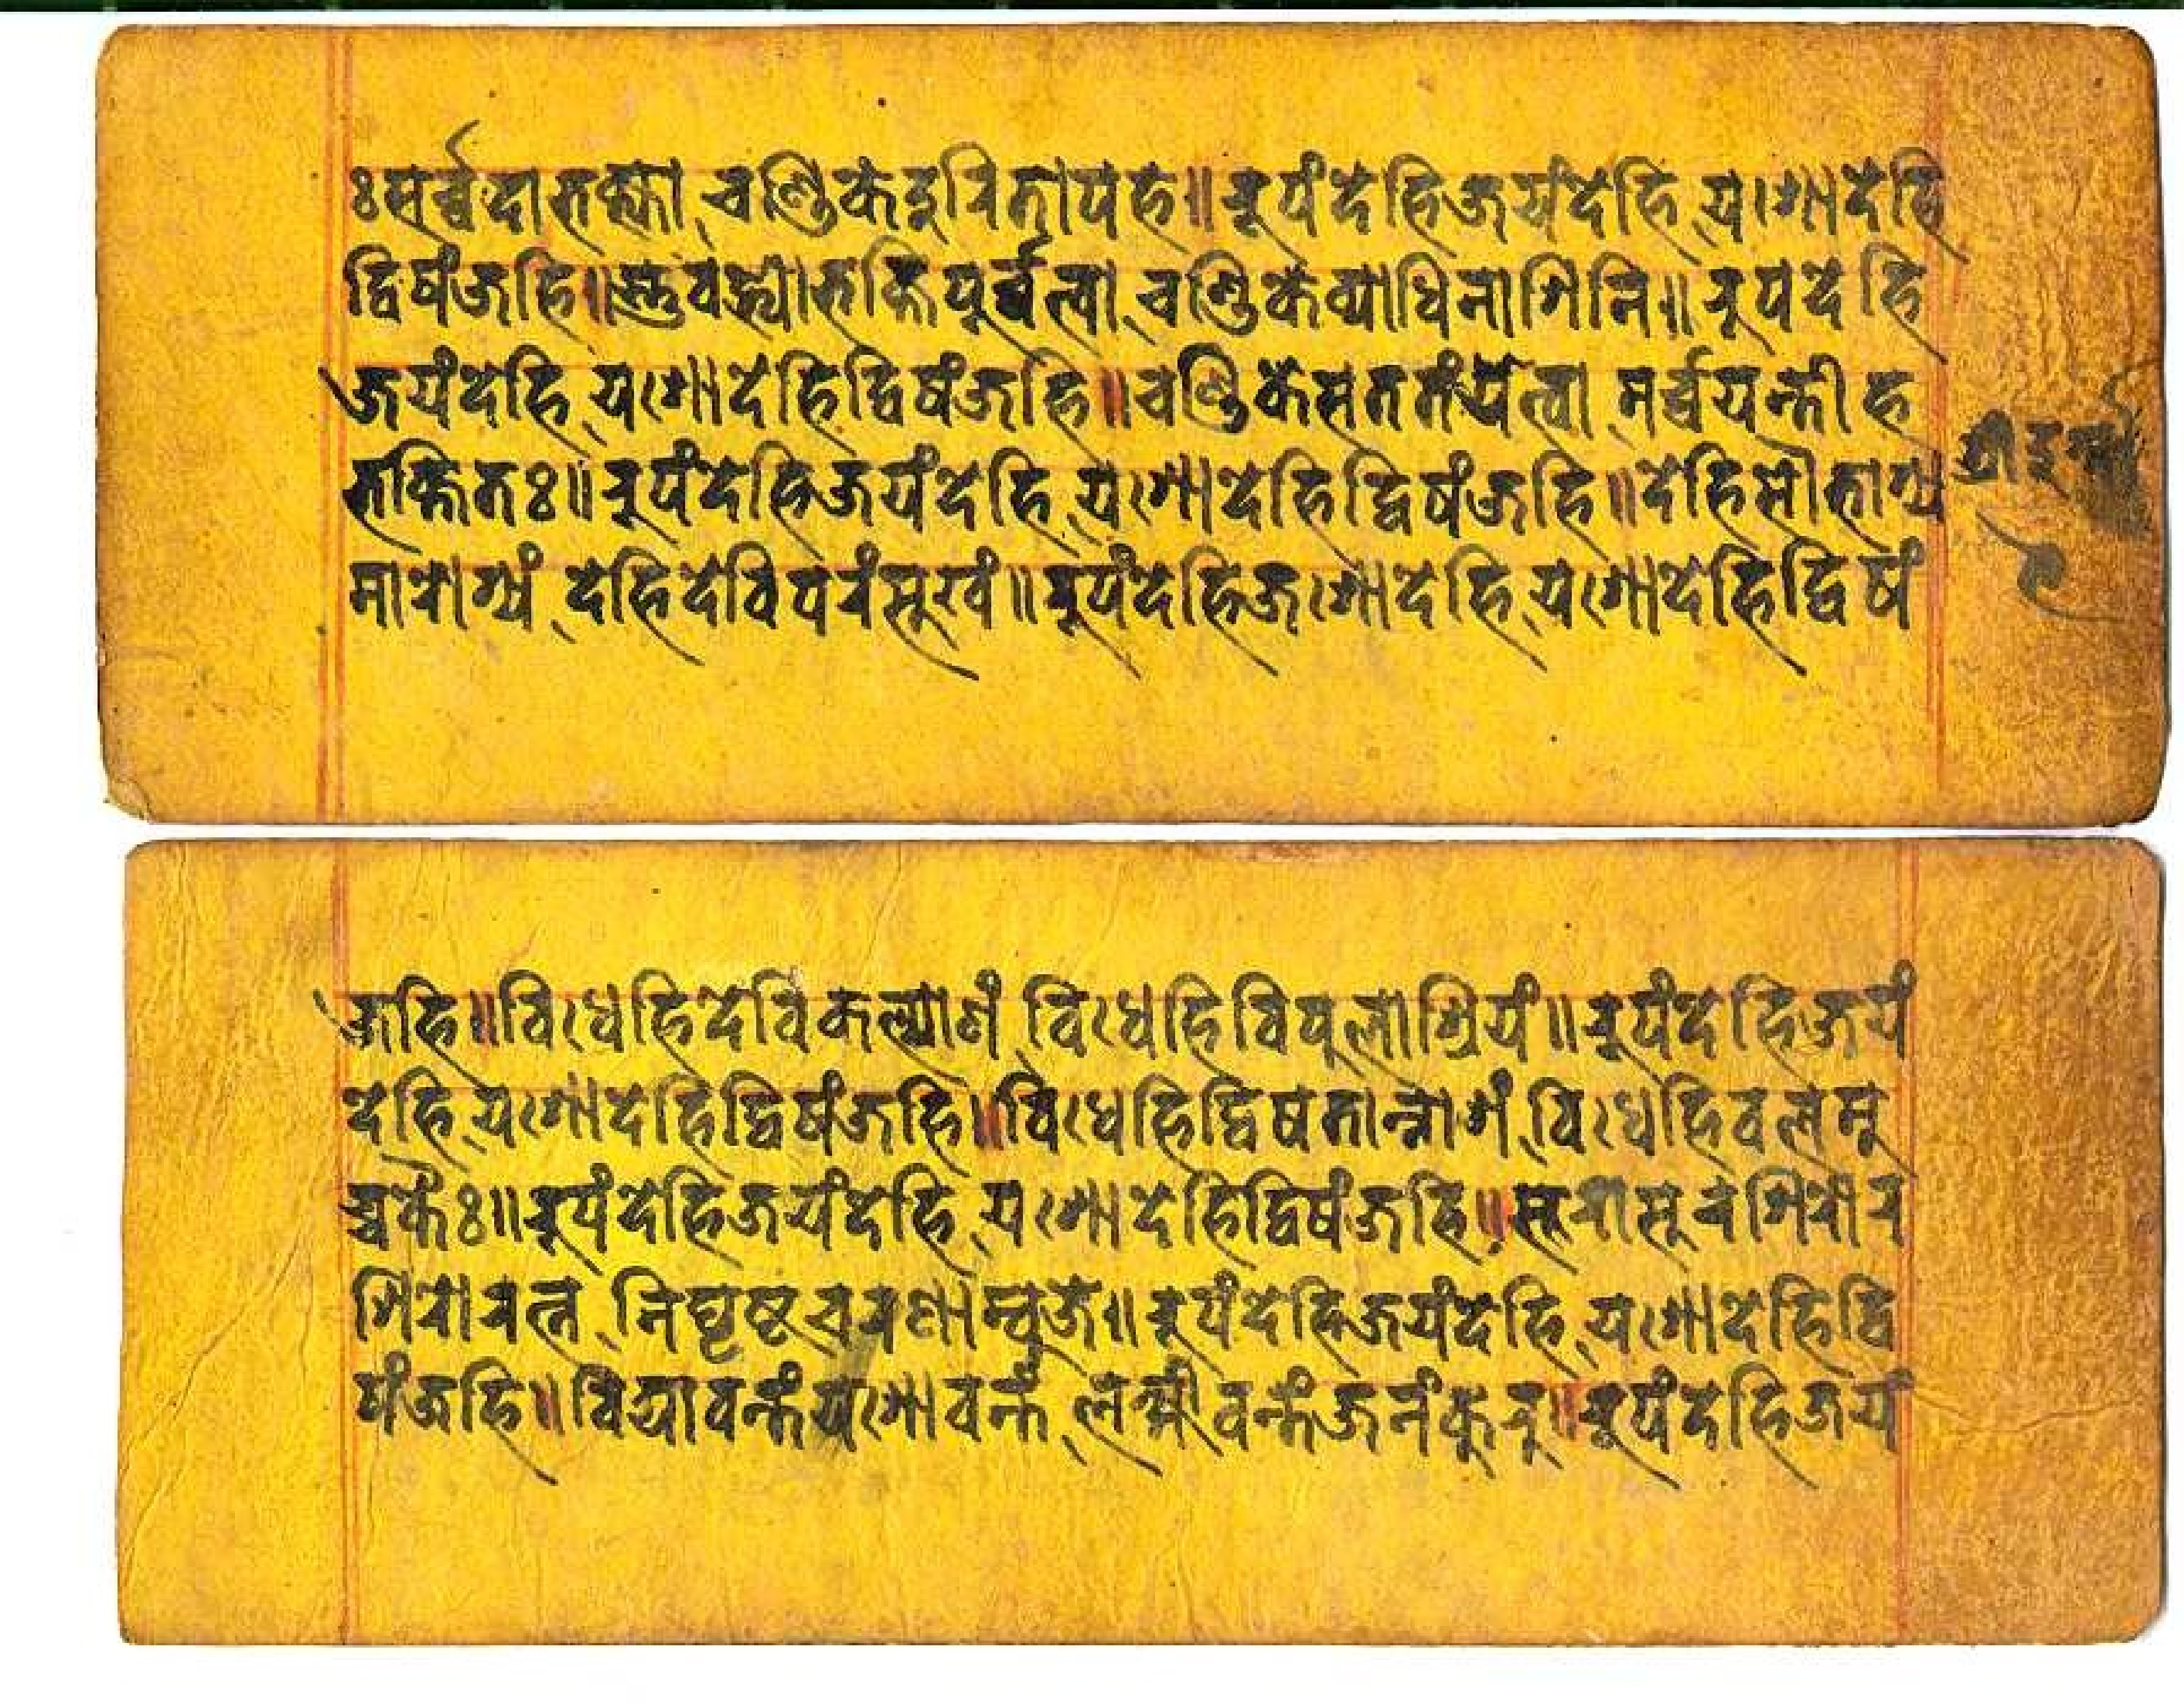 ः सर्व्वदा भक्त्या, चण्डिके दुरितापहे॥ रूपं देहि जयं देहि, यशो देहि
द्विषं जहि॥ स्तुवद्भ्यो भक्तिपूर्व्वं त्वा, चण्डिके व्याधिनाशिनि॥ रूपं देहि
जयं देहि, यशो देहि द्विषं जहि॥ चण्डिके सततं ये त्वा मर्च्चयन्तीह
भक्तितः॥ रूपं देहि जयं देहि, यशो देहि द्विषं जहि॥ देहि सौभाग्य
मारोग्यं, देहि देवि परं सुखं॥ रूपं देहि जशो देहि, यशो देहि द्विषं
जहि॥ विधेहि देवि कल्याणं, विधेहि विपुलां श्रियं॥ रूपं देहि जयं
देहि, यशो देहि द्विषं जहि॥ विधेहि द्विषतान्नाशं, विधेहि वलमु
च्चकैः॥ रूपं देहि जयं देहि, यशो देहि द्विषं जहि॥ सुरासुरशिरोर
शिरोरत्न, निघृष्टचरणाम्बुजे॥ रूपं देहि जयं देहि, यशो देहि द्वि
षं जहि॥ विद्यावन्तं यशोवन्तं, लक्ष्मीवन्तं जनं कुरु॥ रूपं देहि जयं